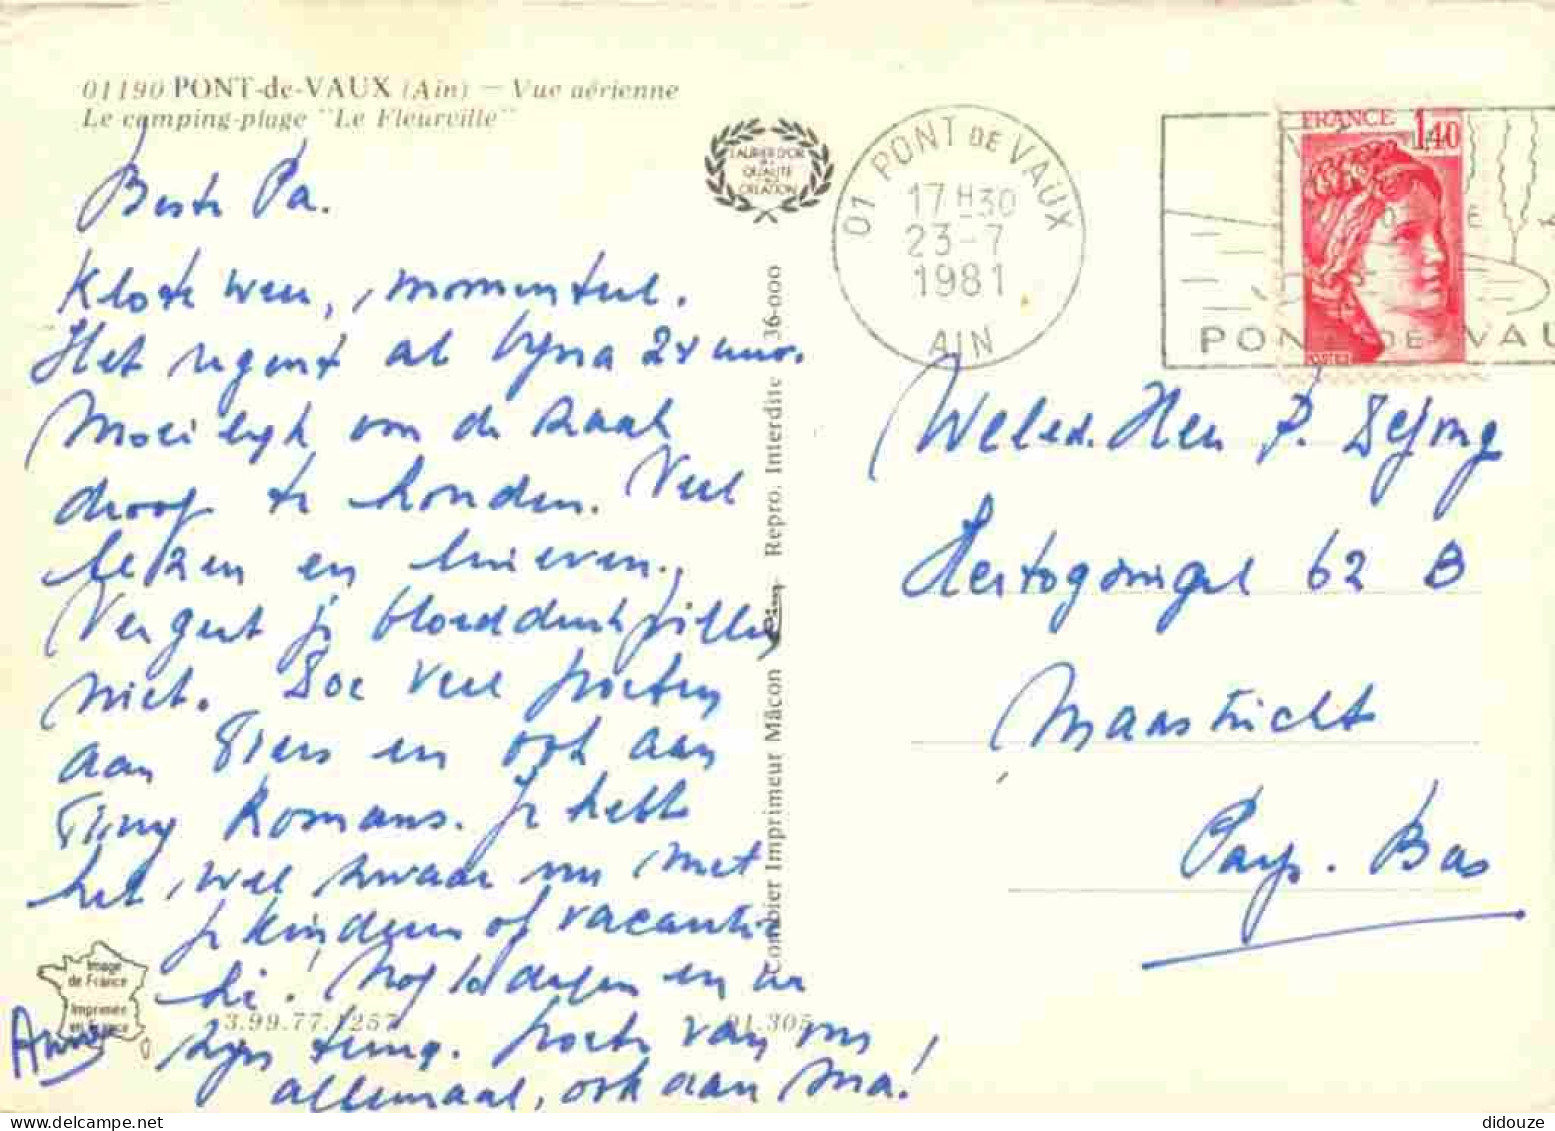 01190 PONT-de-VAUX (Ain) — Vue aérienne
Le camping-plage "Le Fleurville"
Beste Pa.
Klote weer, momenteel.
Het regent al bijna 24 uur.
Moeilijk om de zaak
droog te houden. Veel
lezen en brieven.
Vergeet je bloeddruk pillen
niet. Doe veel poeten
aan Siers en ook aan
Tiny Romans. Je hebt
het wel zwaar nu met
je kinderen op vacantie
hè! Nog 10 dagen en we
zijn terug. poets van ons
allemaal, ook aan Ma!
Anne
LAURIER D'OR
DE LA
QUALITE
CREATION
Combier Imprimeur Mâcon Repro. Interdite 36-000
Image
de France
Imprimée
en France
3.99.77.1257
01.305
01 PONT DE VAUX
17 H 30
23-7
1981
AIN
FRANCE 1,40
POSTES
PONT DE VAU
Weled. Heer P. Dejong
Hertogsingel 62 B
Maastricht
Pays-Bas
didouze